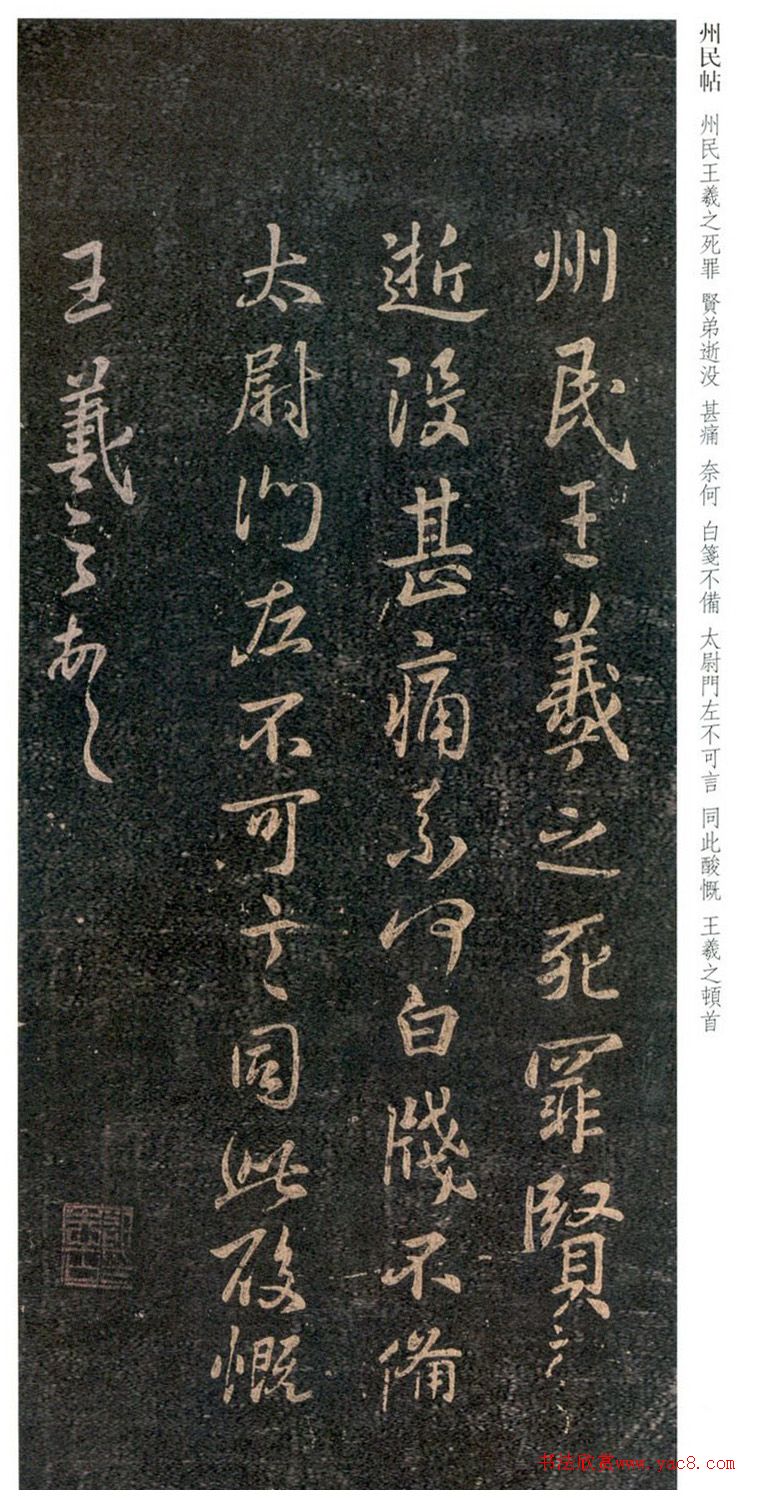 州民帖　州民王羲之死罪　賢弟逝没　甚痛　奈何　白箋不備　太尉門左不可言　同此酸慨　王羲之頓首
州民王羲之死罪賢弟
逝没甚痛奈何白牋不備
太尉門左不可言同此酸慨
王羲之頓首
书法欣赏www.yac8.com